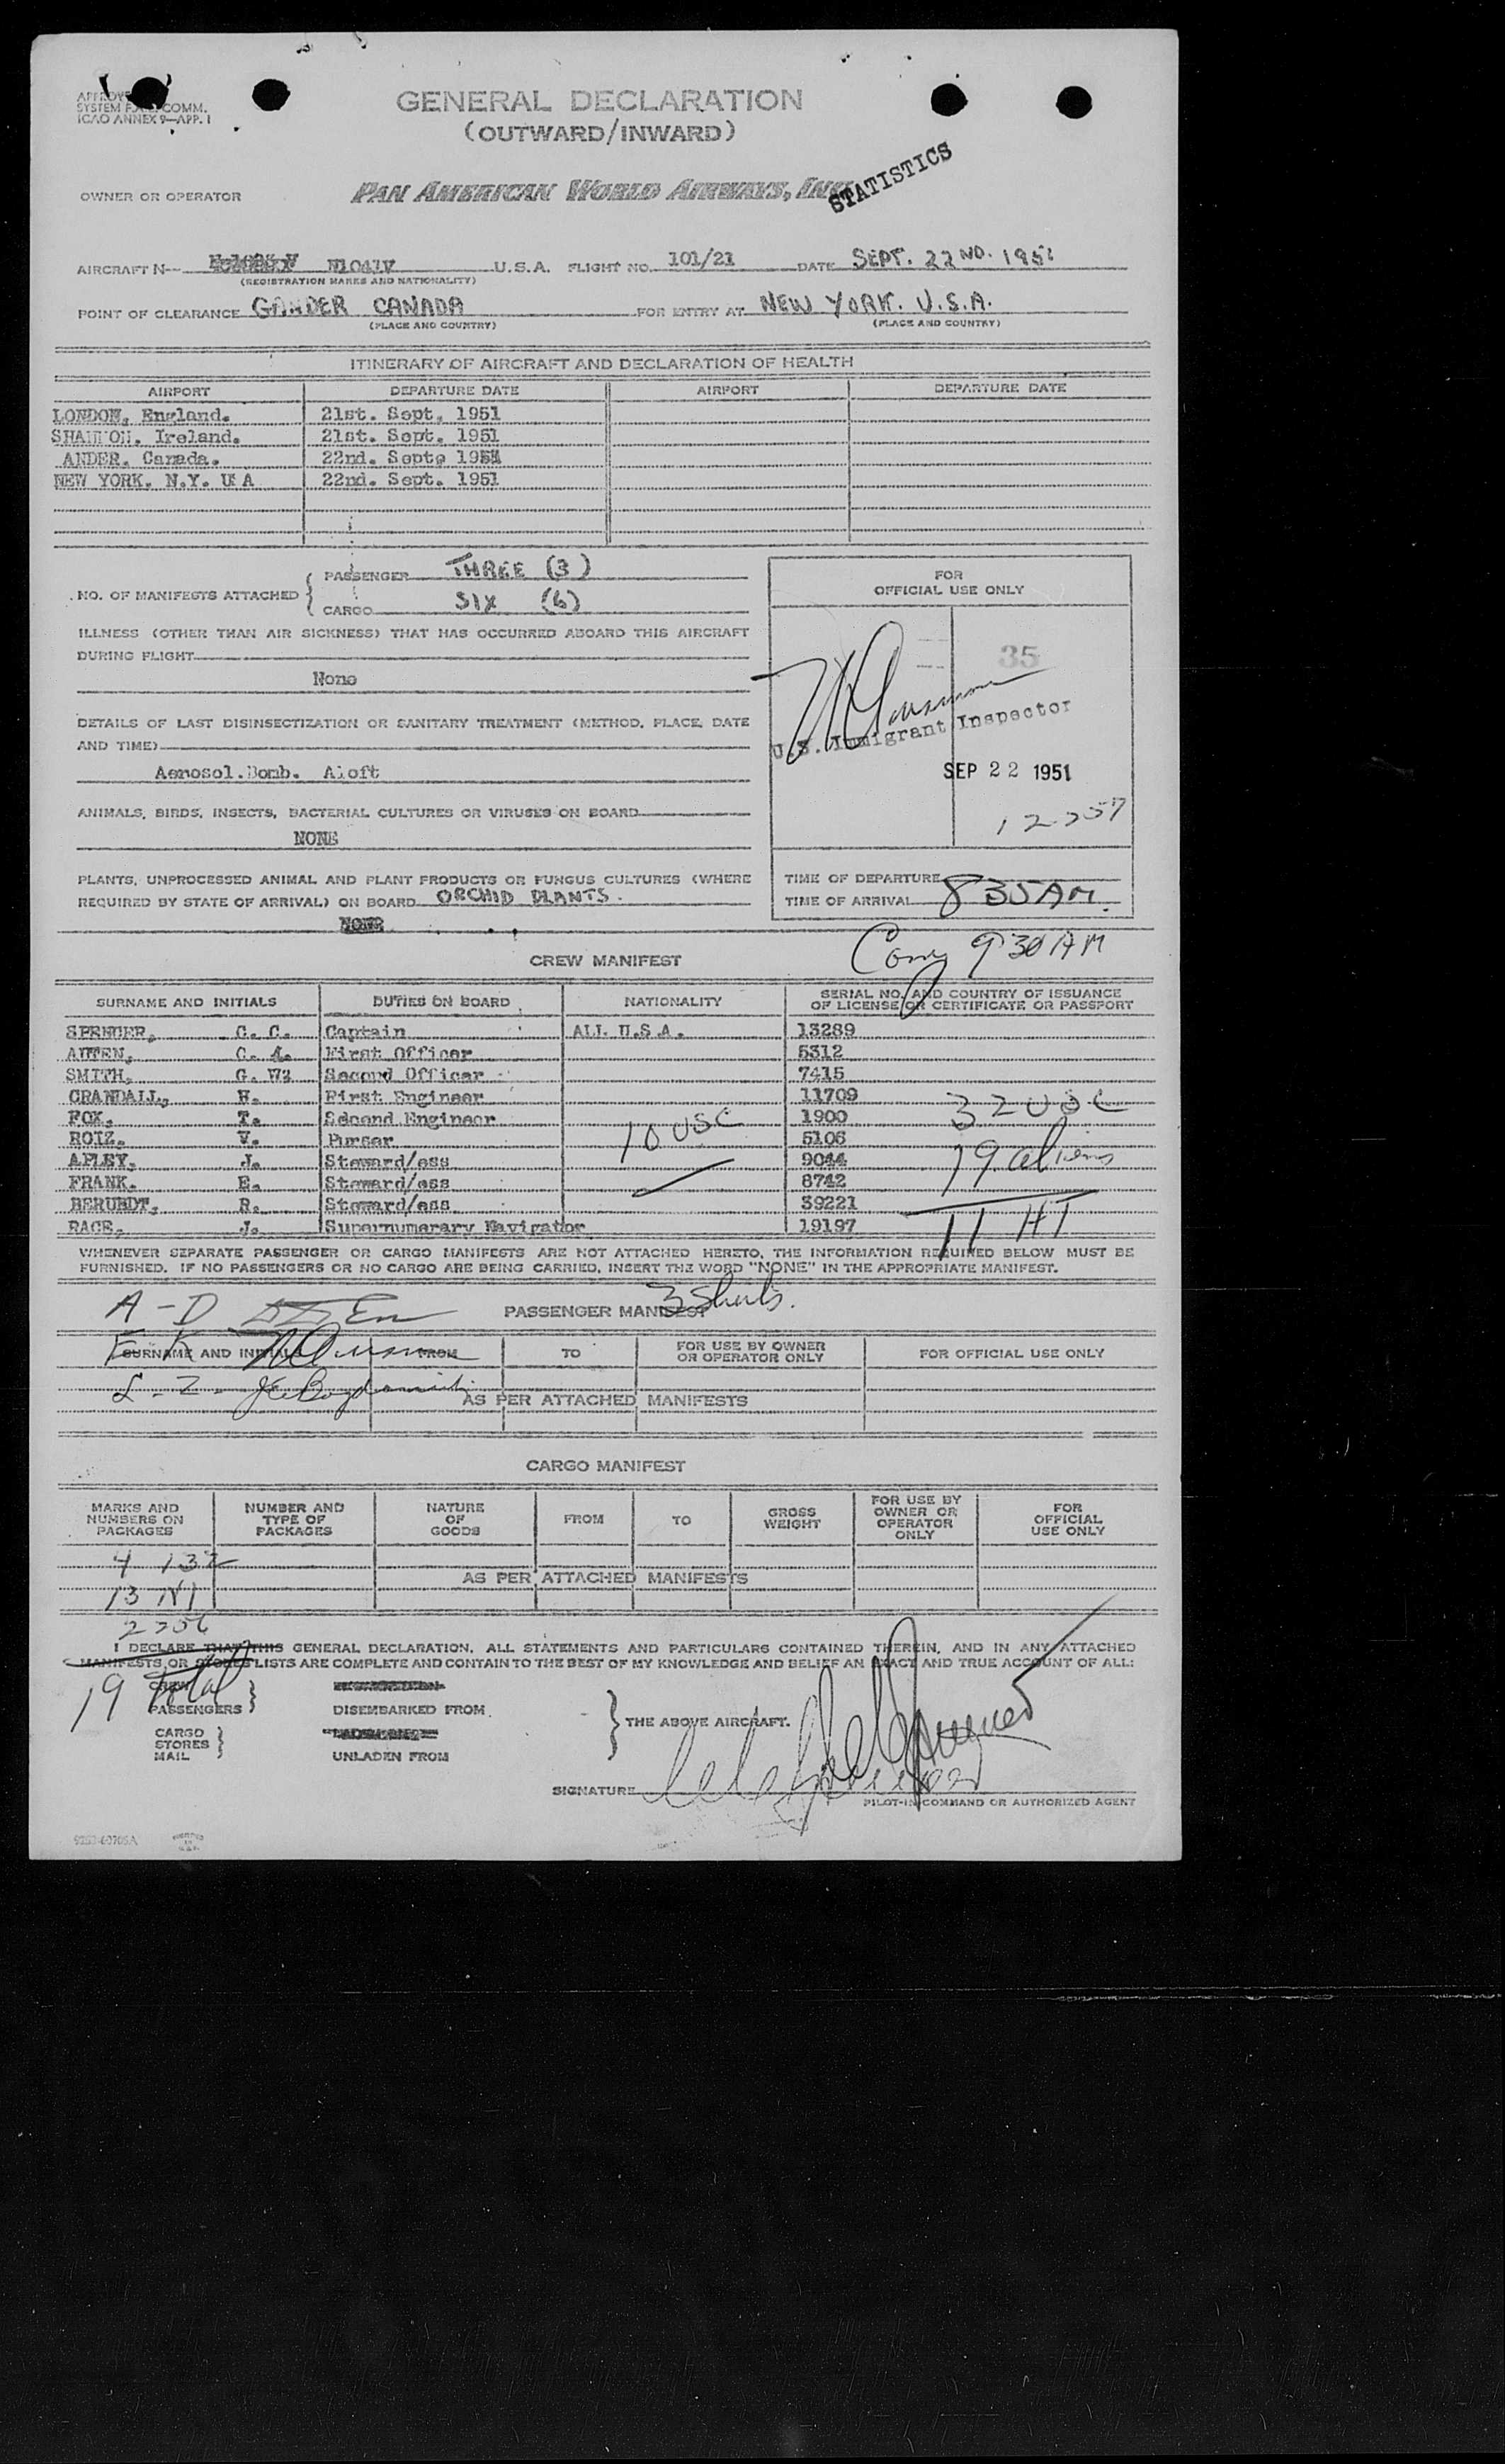 SYSTEM F.A.L. COMM.
ICAO ANNEX 9—APP. I
GENERAL DECLARATION
(OUTWARD/INWARD)
STATISTICS
OWNER OR OPERATOR PAN AMERICAN WORLD AIRWAYS, INC.
AIRCRAFT N— N1041V U.S.A. FLIGHT NO. 101/21 DATE SEPT. 22ND. 1951
(REGISTRATION MARKS AND NATIONALITY)
POINT OF CLEARANCE GANDER CANADA FOR ENTRY AT NEW YORK. U.S.A.
(PLACE AND COUNTRY) (PLACE AND COUNTRY)
ITINERARY OF AIRCRAFT AND DECLARATION OF HEALTH
AIRPORT DEPARTURE DATE AIRPORT DEPARTURE DATE
LONDON, England. 21st. Sept. 1951
SHANNON. Ireland. 21st. Sept. 1951
ANDER. Canada. 22nd. Sept. 1951
NEW YORK. N.Y. U A 22nd. Sept. 1951
NO. OF MANIFESTS ATTACHED { PASSENGER THREE (3)
CARGO SIX (6)
FOR
OFFICIAL USE ONLY
ILLNESS (OTHER THAN AIR SICKNESS) THAT HAS OCCURRED ABOARD THIS AIRCRAFT
DURING FLIGHT
None
35
DETAILS OF LAST DISINSECTIZATION OR SANITARY TREATMENT (METHOD, PLACE, DATE
AND TIME)
Aerosol.Bomb. Aloft
U.S. Immigrant Inspector
SEP 22 1951
ANIMALS, BIRDS, INSECTS, BACTERIAL CULTURES OR VIRUSES ON BOARD
NONE
PLANTS, UNPROCESSED ANIMAL AND PLANT PRODUCTS OR FUNGUS CULTURES (WHERE
REQUIRED BY STATE OF ARRIVAL) ON BOARD ORCHID PLANTS.
NONE
TIME OF DEPARTURE
TIME OF ARRIVAL 8 35 AM.
9 30 AM
CREW MANIFEST
SURNAME AND INITIALS DUTIES ON BOARD NATIONALITY SERIAL NO. AND COUNTRY OF ISSUANCE
OF LICENSE OR CERTIFICATE OR PASSPORT
SPENCER, C. C. Captain ALL U.S.A. 13289
AUTEN, C. A. First Officer 5312
SMITH, G. W. Second Officer 7415
CRANDALL, H. First Engineer 11709
FOX, T. Second Engineer 1900
ROIZ, V. Purser 5106
APLEY, J. Steward/ess 9044
FRANK. E. Steward/ess 8742
BERUEDT, R. Steward/ess 39221
RACE, J. Supernumerary Navigator 19197
10 USC
32 USC
19 aliens
WHENEVER SEPARATE PASSENGER OR CARGO MANIFESTS ARE NOT ATTACHED HERETO, THE INFORMATION REQUIRED BELOW MUST BE
FURNISHED. IF NO PASSENGERS OR NO CARGO ARE BEING CARRIED, INSERT THE WORD "NONE" IN THE APPROPRIATE MANIFEST.
A - D
PASSENGER MANIFEST 3 Sheets.
E K
SURNAME AND INITIALS FROM TO FOR USE BY OWNER
OR OPERATOR ONLY FOR OFFICIAL USE ONLY
L - Z -
AS PER ATTACHED MANIFESTS
CARGO MANIFEST
MARKS AND
NUMBERS ON
PACKAGES
NUMBER AND
TYPE OF
PACKAGES
NATURE
OF
GOODS
FROM
TO
GROSS
WEIGHT
FOR USE BY
OWNER OR
OPERATOR
ONLY
FOR
OFFICIAL
USE ONLY
4 132
AS PER ATTACHED MANIFESTS
I DECLARE THAT THIS GENERAL DECLARATION, ALL STATEMENTS AND PARTICULARS CONTAINED THEREIN, AND IN ANY ATTACHED
MANIFESTS OR STORES LISTS ARE COMPLETE AND CONTAIN TO THE BEST OF MY KNOWLEDGE AND BELIEF AN EXACT AND TRUE ACCOUNT OF ALL:
19 Total
CREW
PASSENGERS }
DISEMBARKED FROM
CARGO
STORES }
MAIL
UNLADEN FROM
} THE ABOVE AIRCRAFT.
SIGNATURE
PILOT-IN-COMMAND OR AUTHORIZED AGENT